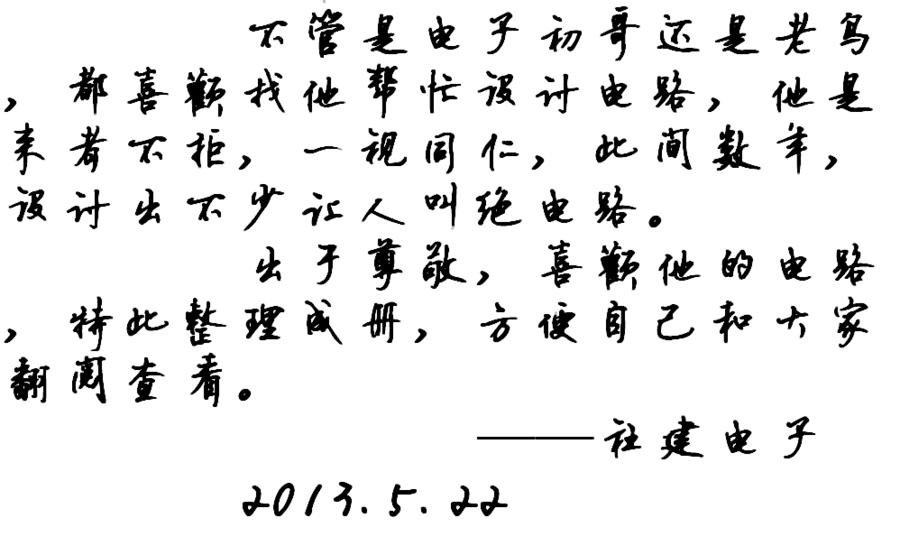 不管是电子初哥还是老鸟
，都喜歡找他帮忙设计电路，他是
来者不拒，一视同仁，此间数年，
设计出不少让人叫绝电路。
出于尊敬，喜歡他的电路
，特此整理成册，方便自己和大家
翻阅查看。
——社建电子
2013.5.22